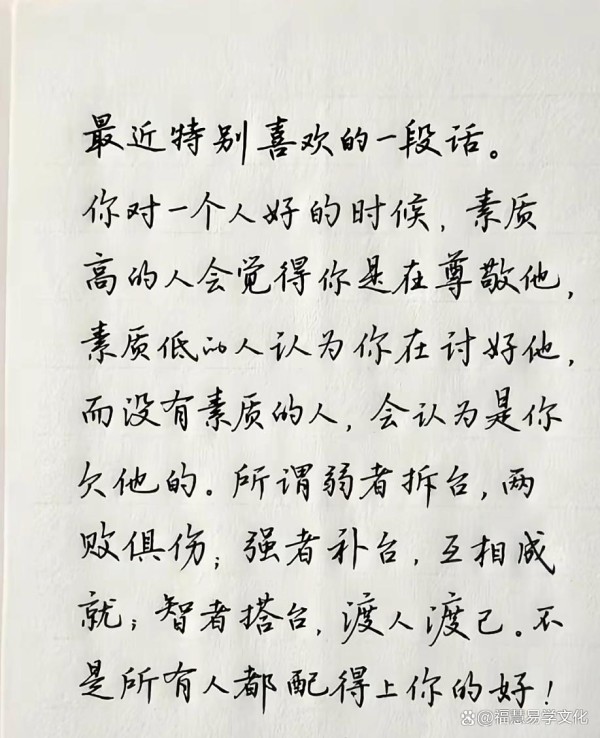 最近特别喜欢的一段话。
你对一个人好的时候,素质
高的人会觉得你是在尊敬他,
素质低的人认为你在讨好他,
而没有素质的人,会认为是你
欠他的。所谓弱者拆台,两
败俱伤;强者补台,互相成
就;智者搭台,渡人渡己。不
是所有人都配得上你的好!
@福慧易学文化